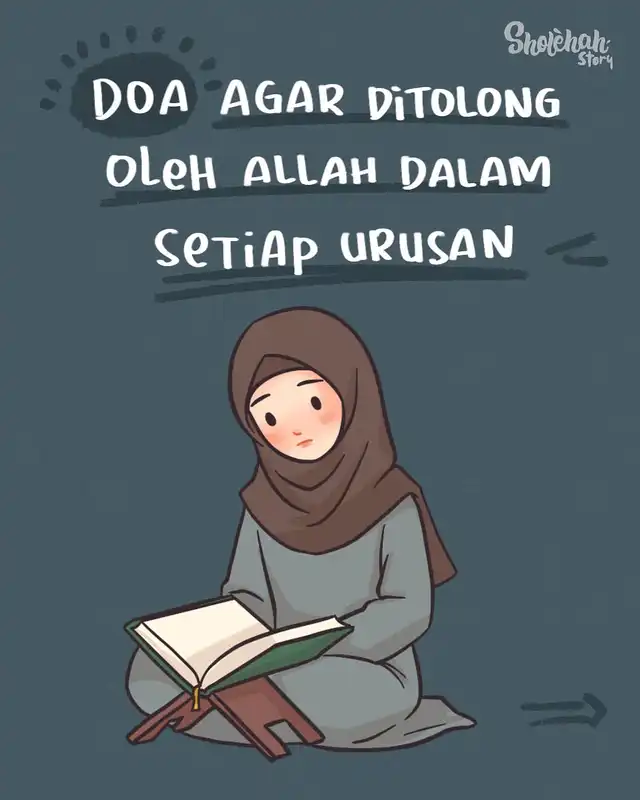 Sholèhah
Story
DOA AGAR DiTOLONG
OLeH ALLAH DALAM
SeTiAP URUSAN